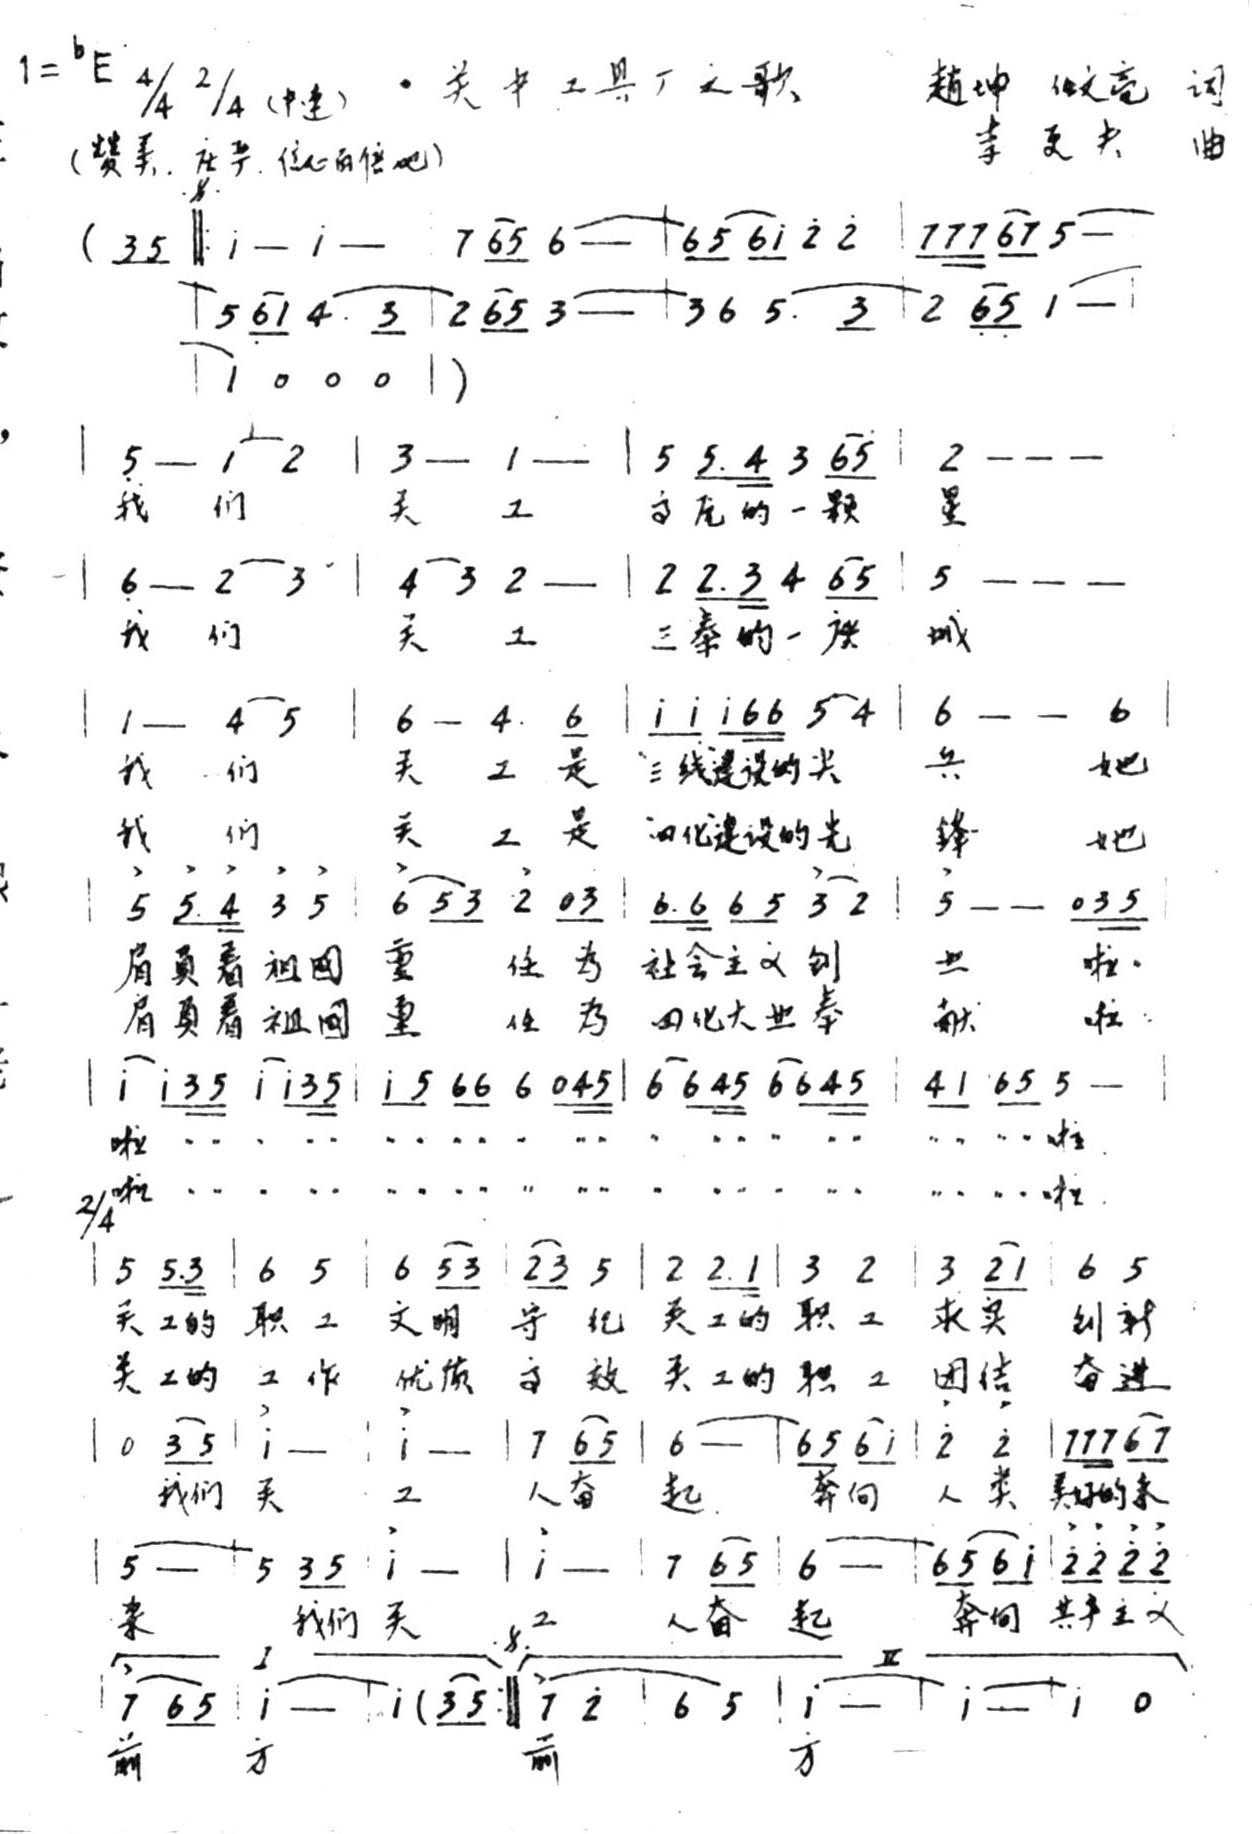 1=ᵇE 4/4 2/4 (中速) · 关中工具厂之歌 赵坤 文亮 词
(赞美、庄严、信心百倍地) 李更夫 曲
( 35 ‖: i — i — 7 65 6 — | 65 6i 2̇ 2̇ | 777 67 5 —
| 5 61 4· 3 | 2 65 3 — | 3 6 5· 3 | 2 65 1 — |
| 1 0 0 0 | )
| 5 — 1 2 | 3 — 1 — | 5 5.4 3 65 | 2 — — —
我 们 关 工 高原的一颗 星
| 6 — 2 3 | 4 3 2 — | 2 2.3 4 65 | 5 — — —
我 们 关 工 三秦的一座 城
| 1 — 4 5 | 6 — 4· 6 | i i i66 5 4 | 6 — — 6 |
我 们 关 工 是 三线建设的尖 兵 她
我 们 关 工 是 四化建设的先 锋 她
| 5 5.4 3 5 | 6 53 2 03 | 6.6 65 3 2 | 5 — — 035 |
肩负着祖国 重 任 为 社会主义创 业 啦
肩负着祖国 重 任 为 四化大业奉 献 啦
| i i35 i i35 | i5 66 6 045 | 6 645 6 645 | 41 65 5 — |
啦 〃 〃 · 〃 〃 〃 〃 〃 · 〃 · 〃 〃 〃 〃 啦
啦 〃 〃 · 〃 〃 〃 〃 〃 · 〃 · 〃 〃 〃 〃 啦
2/4
| 5 5.3 | 6 5 | 6 53 | 23 5 | 2 2.1 | 3 2 | 3 21 | 6 5
关工的 职工 文明 守纪 关工的 职工 求实 创新
关工的 工作 优质 高效 关工的 职工 团结 奋进
| 0 35 | i — | i — | 7 65 | 6 — | 65 6i | 2̇ 2̇ | 777 67
我们 关 工 人奋 起 奔向 人类 美好的未
| 5 — | 5 35 | i — | i — | 7 65 | 6 — | 65 6i | 2̇2̇ 2̇2̇
来 我们 关 工 人奋 起 奔向 共产主义
I II
| 7 65 | i — | i (35 :‖ 7 2̇ | 6 5 | i — | i — | i 0
前 方 前 方